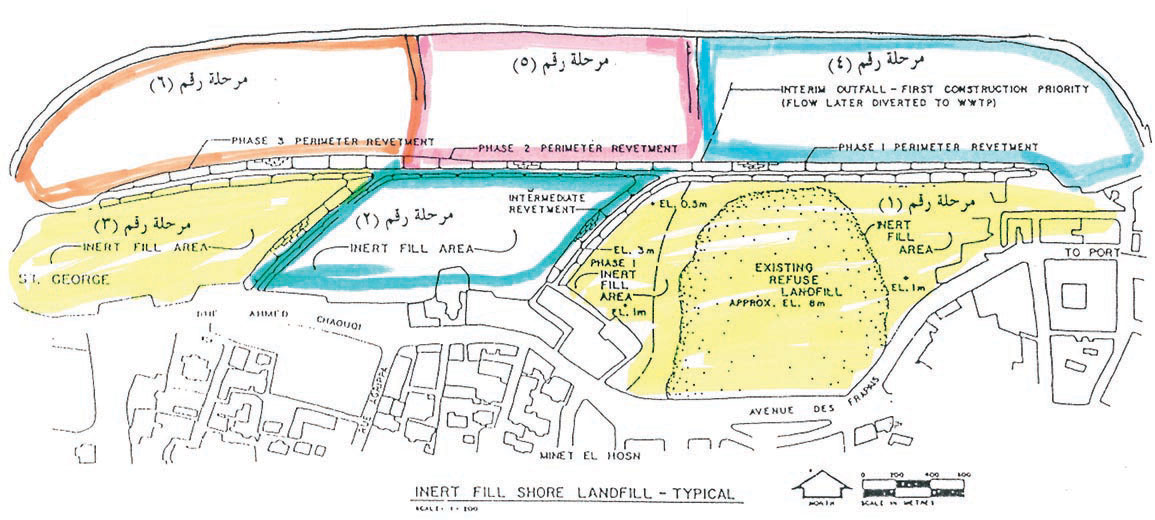 مرحلة رقم (٦)
مرحلة رقم (٥)
مرحلة رقم (٤)
INTERIM OUTFALL - FIRST CONSTRUCTION PRIORITY
(FLOW LATER DIVERTED TO WWTP)
PHASE 3 PERIMETER REVETMENT
PHASE 2 PERIMETER REVETMENT
PHASE 1 PERIMETER REVETMENT
مرحلة رقم (٣)
INERT FILL AREA
ST. GEORGE
مرحلة رقم (٢)
INERT FILL AREA
INTERMEDIATE
REVETMENT
EL. 0.5m
EL. 3m
PHASE 1
INERT
FILL
AREA
EL. 1m
EXISTING
REFUSE
LANDFILL
APPROX. EL. 8m
مرحلة رقم (١)
INERT
FILL
AREA
EL. 1m
TO PORT
RUE AHMED CHAOUQI
AVENUE DES
MINET EL HOSN
INERT FILL SHORE LANDFILL - TYPICAL
NORTH
0 200 400 600
SCALE IN METRES